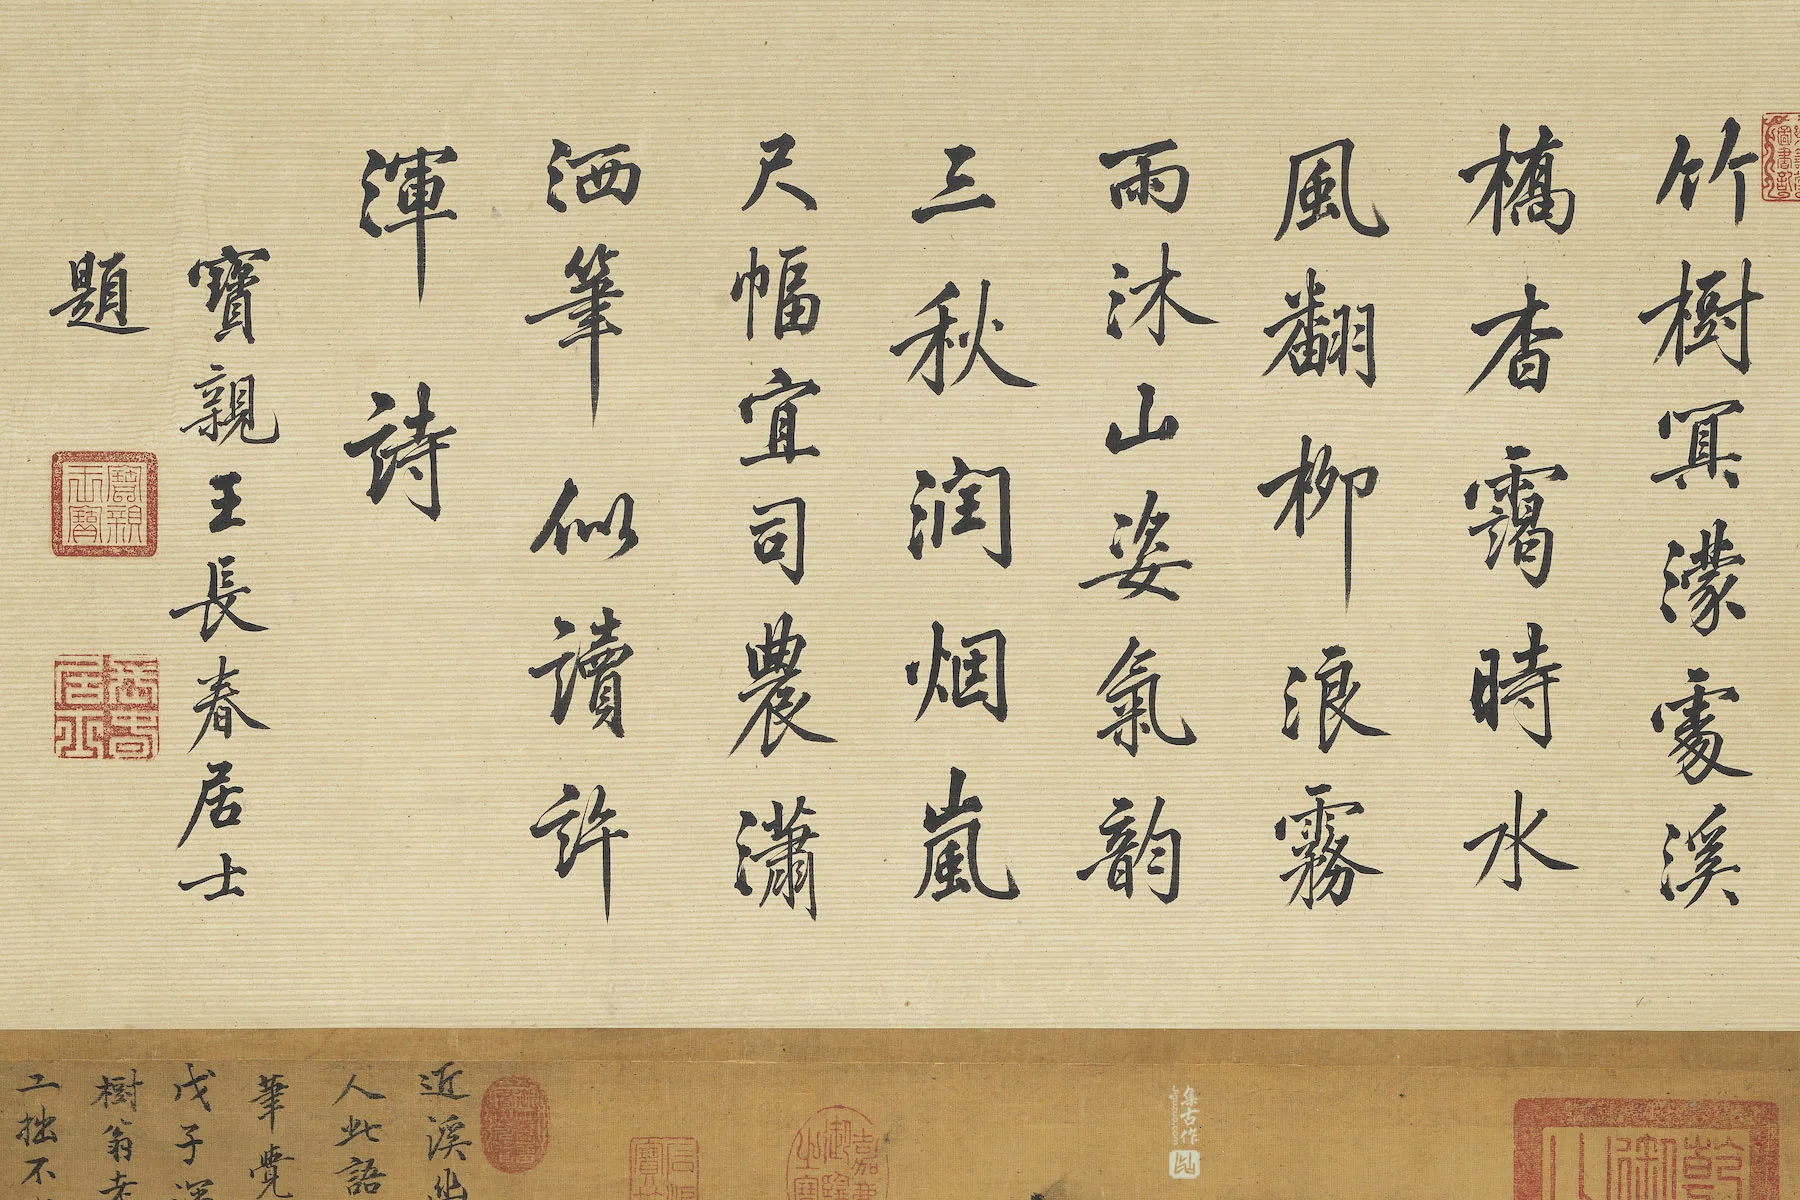 竹樹冥濛處溪
橋杳靄時水
風翻柳浪霧
雨沐山姿氣韵
三秋润烟嵐
尺幅宜司農瀟
洒筆似讀許
渾詩
寶親王長春居士
題
寶親王寶
長春居士
近溪
人此語
華覺
戊子深
樹翁
工拙不
集古作